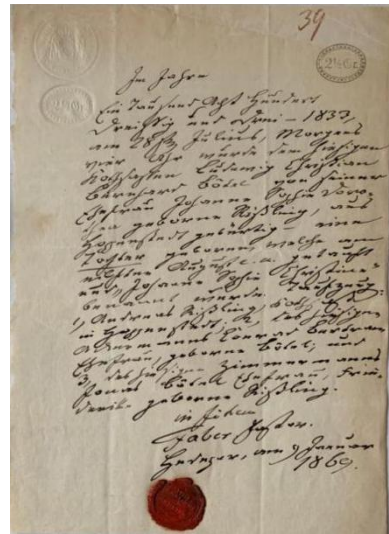 39
2½ Gr.
Im Jahre
Ein Tausend Acht Hundert
Dreißig und Drei – 1833,
am 28ten Julius, Morgens
vier Uhr wurde dem hiesigen
Kothsassen Ludwig Christian
Bernhard Bötel von seiner
Ehefrau Johanne Sophie Doro-
thea geborne Kißling, aus
Hoppenstedt gebürtig – eine
Tochter geboren, welche am
eilften August c. a. getauft
und Johanne Sophie Christine
benannt wurde.
1, Andreas Kißling,
in Hoppenstedt, 2, des hiesigen
Ackermanns Conrad Bertram
Ehefrau, geborne Bötel; und
3, des hiesigen Zimmermanns
Bötel Ehefrau, Frie-
derike geborne Kißling.
in fidem
Faber Pastor.
am 9 Januar
1869.